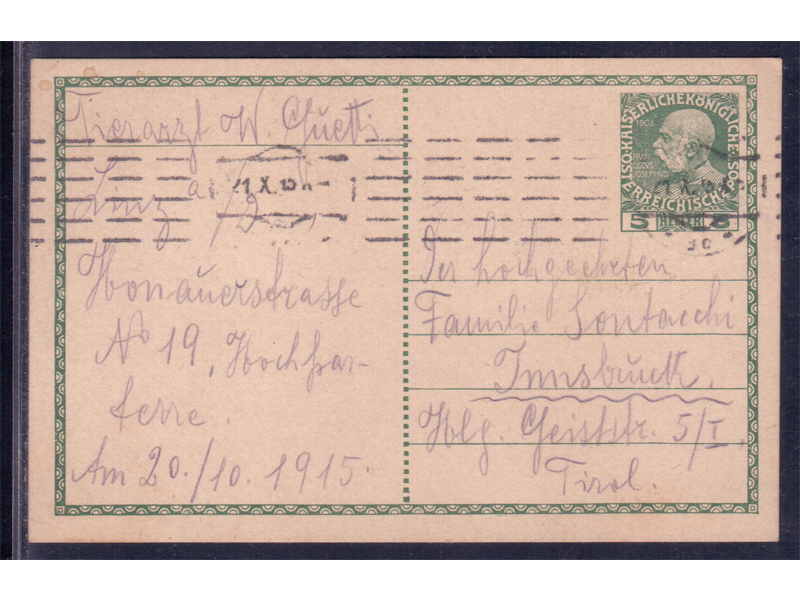 Tierarzt W. Guetti
Linz a/D,
Honauerstrasse
No 19, Hochpar-
terre.
Am 20./10. 1915.
21.X.15
KAISERLICHEKÖNIGLICHE
ÖSTERREICHISCHE
1908
FRAN
CISCVS
JOSEPHVS
5 HELLER 5
Der hochgeehrten
Familie Sontacchi
Innsbruck.
Hlg. Geiststr. 5/I.
Tirol.